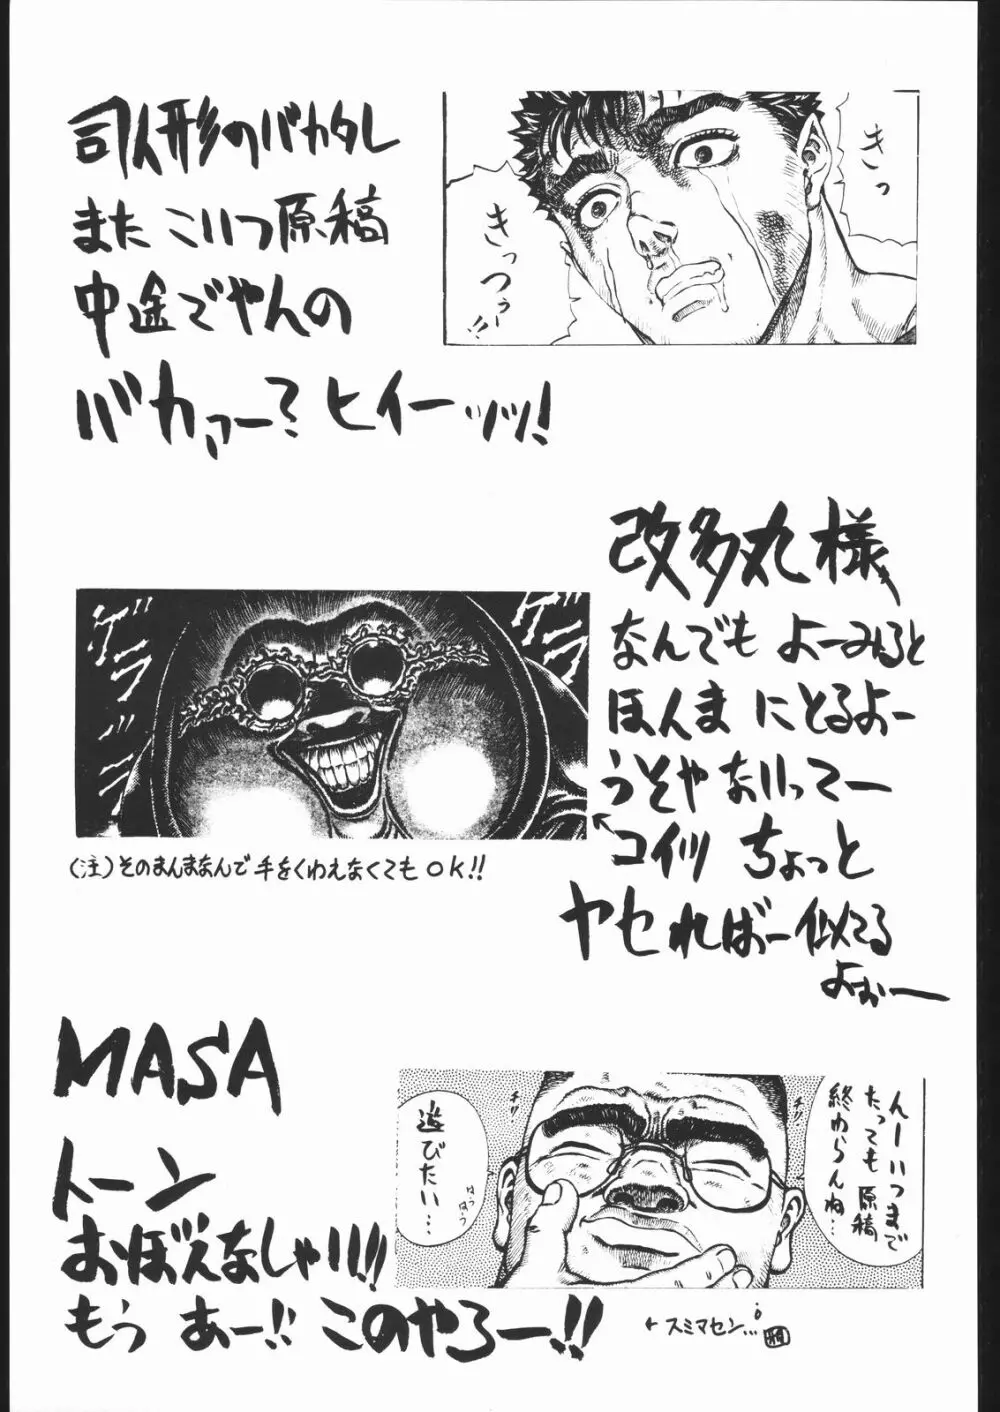 司人形のバカタレ
また こいつ原稿
中途でやんの
バカァー?ヒイーッッ!
きっ
きっつぅー!!
改多丸様
なんでも よーみると
ほんま にとるよー
うそや ないってー
コイツ ちょっと
ヤセればぁー似てる
よぉー
ゲラ
ゲラ
(注)そのまんまなんで手をくわえなくてもOK!!
MASA
トーン
おぼえなしゃい!!
もう あー!! このやろー!!
んーいつまで
たっても原稿
終わらんね…
遊びたい…
はう
はう
←スミマセン…